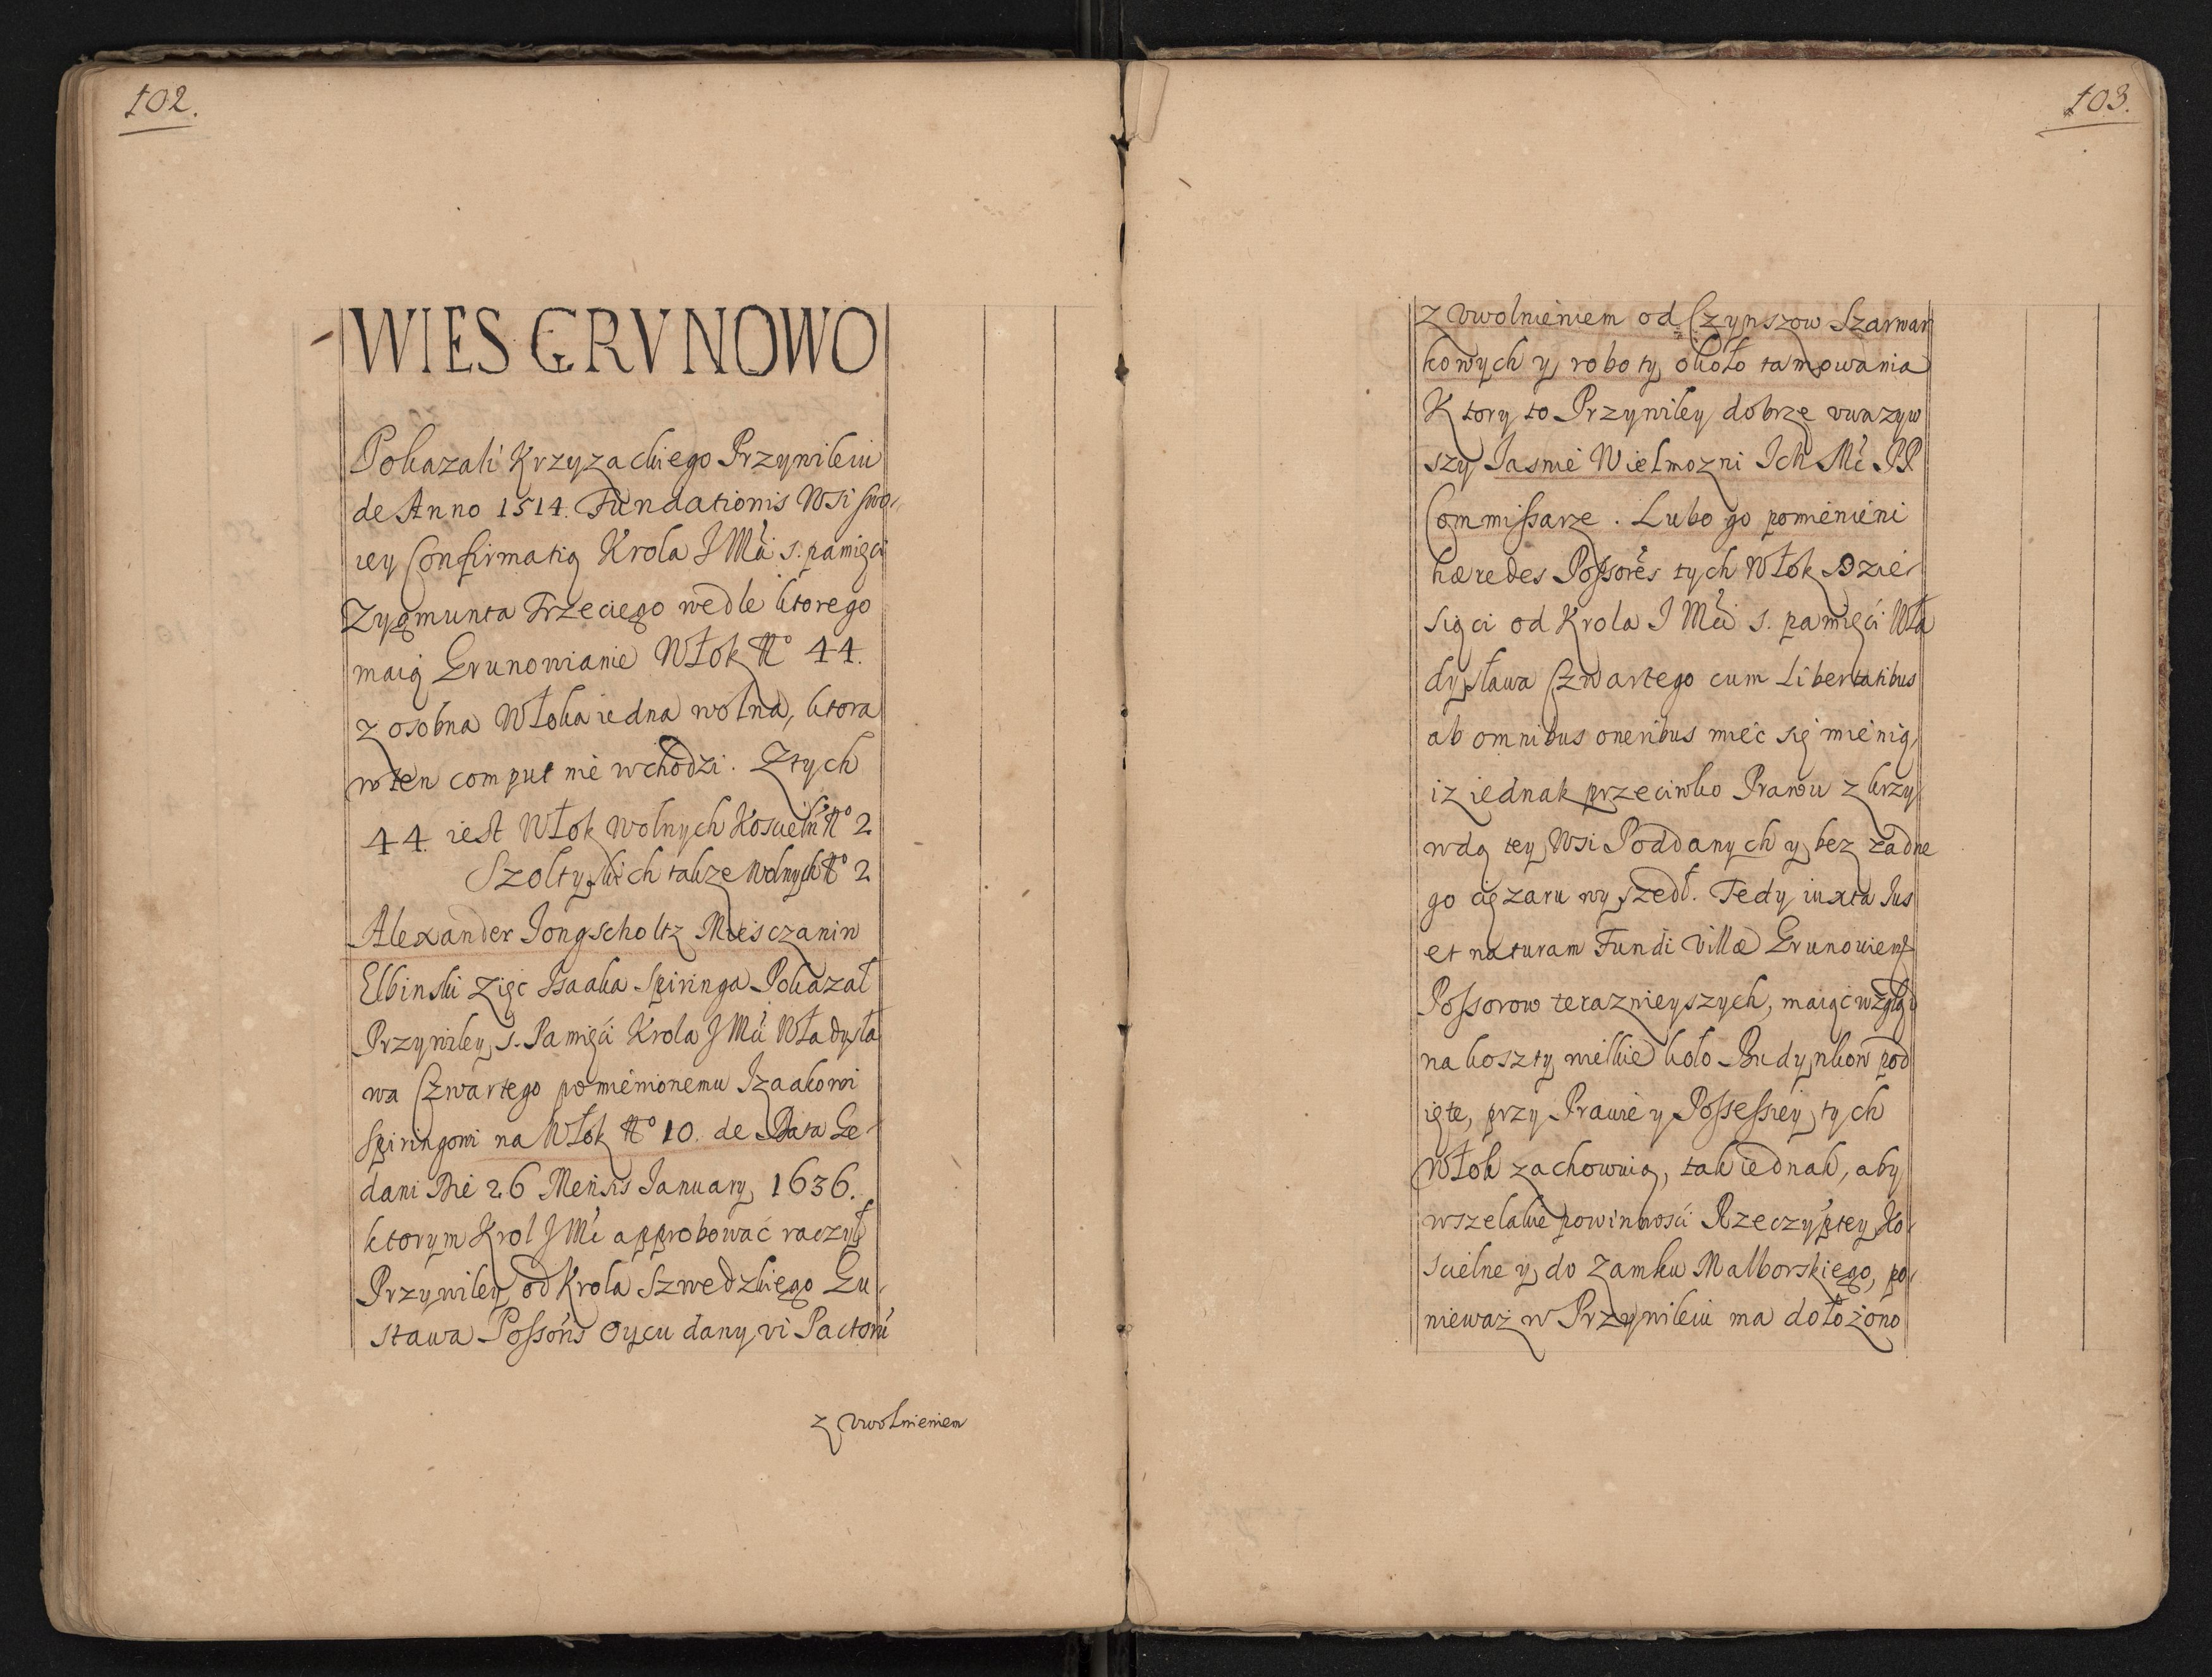 102.
WIES GRVNOWO
Pokazali Krzyzackiego Przywileiu
de Anno 1514. Fundationis Wsi swo-
iey Confirmatią Krola J Mći s. pamięci
Zygmunta Trzeciego wedle ktorego
maią Grunowianie Włok No 44.
z osobna Włoka iedna wolna, ktora
w ten comput nie wchodzi. Z tych
44. iest Włok wolnych Kościeln No 2
Szoltyskich takze wolnych No 2
Alexander Jongscholtz Miesczanin
Elbinski Zięc Isaaka Spiringa Pokazał
Przywiley s. Pamięci Krola J Mći Władysła
wa Czwartego pomienionemu Izaakowi
Spiringowi na Włok No 10. de Data Ge-
dani Die 26 Mensis January 1636.
ktorym Krol J Mć approbować raczył
Przywiley od Krola Szwedzkiego Gu-
stawa Possoris Oycu dany vi Pactorũ
z vwolnieniem
103.
z vwolnieniem od Czynszow Szarwar
kowych y roboty około tamowania
Ktory to Przywiley dobrze vwazyw
szy Jasnie Wielmozni Ich Mć PP
Commissarze. Lubo go pomienieni
hæredes Possorēs tych Włok Dzie-
sięci od Krola J Mći s. pamięći Wła
dysława Czwartego cum libertatibus
ab omnibus oneribus mieć się mienią,
iz iednak przeciwko Prawu z krzy
wdą tey Wsi Poddanych y bez zadne
go cięzaru wyszedł. Tedy iuxta Jus
et naturam Fundi Villæ Grunowiens
Possorow terazneyszych, maiąc wzgląd
na koszty wielkie koło Budynkow pod
ięte, przy Prawie y Possessiey tych
Włok zachowuią, tak iednak, aby
wszelakie powinności Rzeczyptey Ko-
scielne y do Zamku Malborskiego, po-
niewaz w Przywileiu ma dołożono